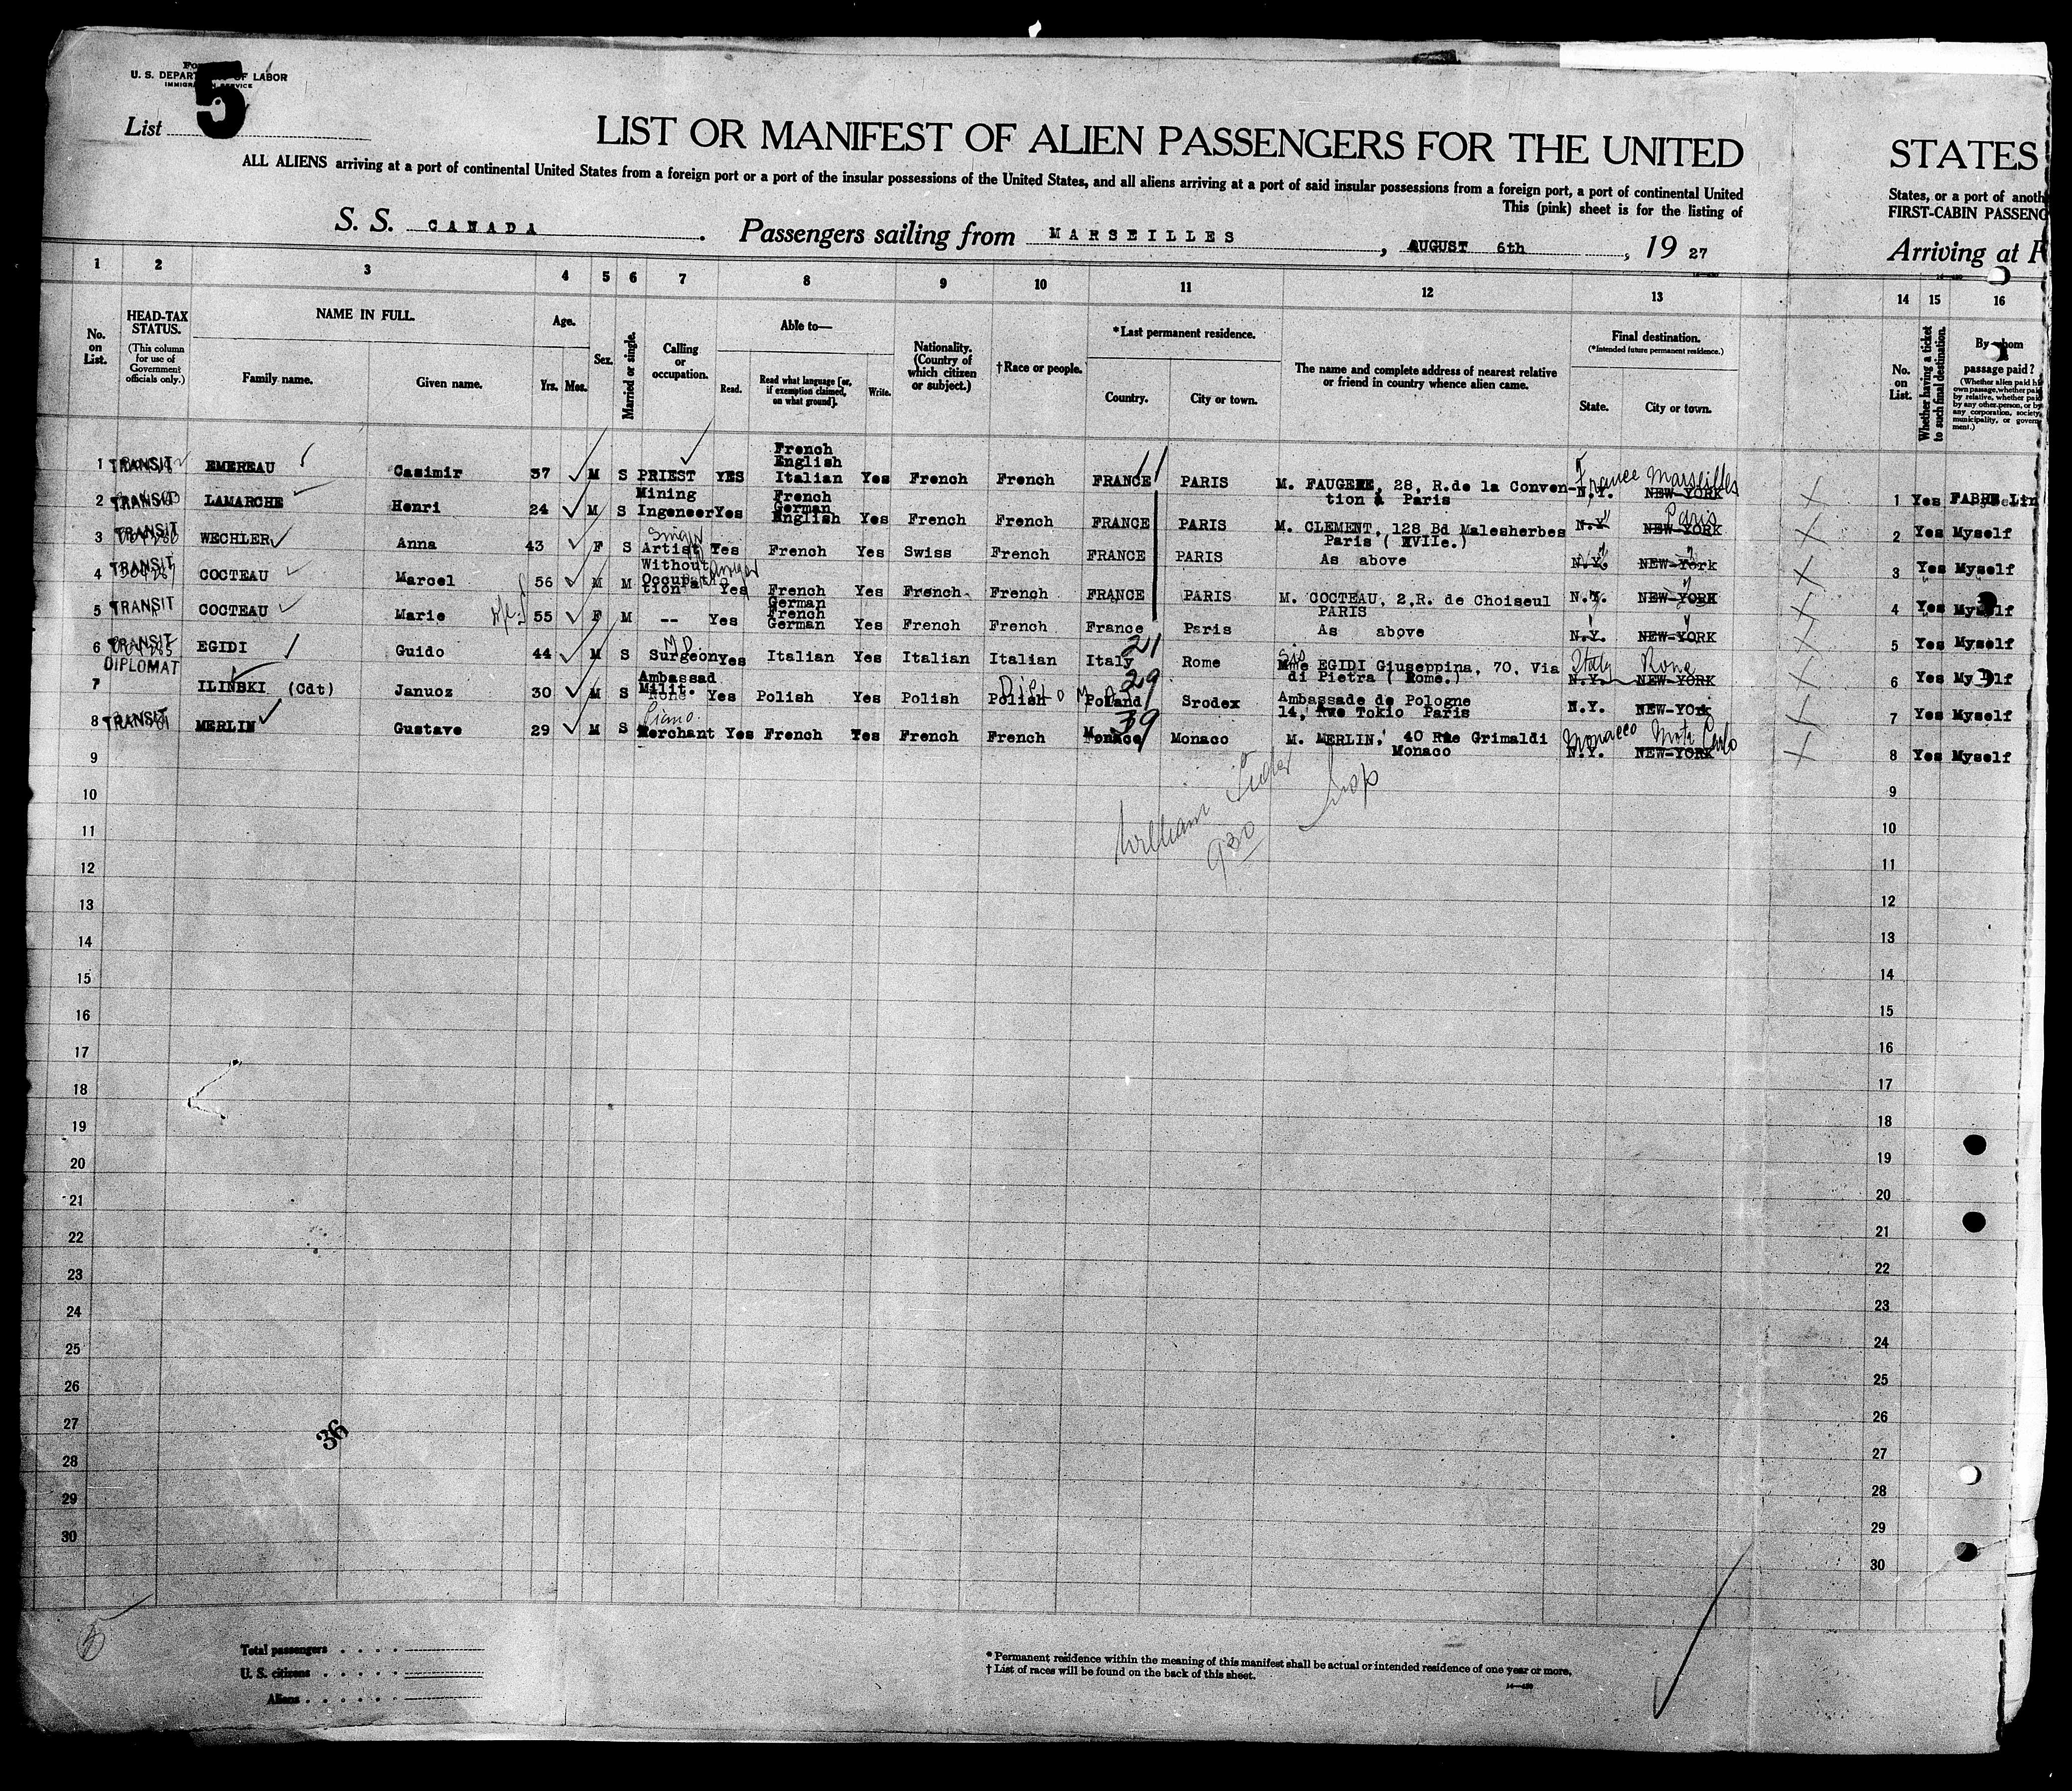 U. S. DEPARTMENT OF LABOR
IMMIGRATION SERVICE
List 5
LIST OR MANIFEST OF ALIEN PASSENGERS FOR THE UNITED STATES
ALL ALIENS arriving at a port of continental United States from a foreign port or a port of the insular possessions of the United States, and all aliens arriving at a port of said insular possessions from a foreign port, a port of continental United States, or a port of anoth
This (pink) sheet is for the listing of FIRST-CABIN PASSENG
S. S. CANADA. Passengers sailing from MARSEILLES, AUGUST 6th, 19 27 Arriving at
1 2 3 4 5 6 7 8 9 10 11 12 13 14 15 16
No. on List.
HEAD-TAX STATUS.
(This column for use of Government officials only.)
NAME IN FULL.
Family name. Given name.
Age.
Yrs. Mos.
Sex.
Married or single.
Calling or occupation.
Able to—
Read. Read what language [or, if exemption claimed, on what ground]. Write.
Nationality. (Country of which citizen or subject.)
†Race or people.
*Last permanent residence.
Country. City or town.
The name and complete address of nearest relative or friend in country whence alien came.
Final destination.
(*Intended future permanent residence.)
State. City or town.
No. on List.
Whether having a ticket to such final destination.
By whom passage paid?
(Whether alien paid his own passage, whether paid by relative, whether paid by any other person, or by any corporation, society, municipality, or government.)
1 TRANSIT EMEREAU Casimir 37 M S PRIEST YES French English Italian Yes French French FRANCE PARIS M. FAUGERE, 28, R.de la Convention à Paris N.Y. NEW-YORK France Marseilles 1 Yes FABRE Lin
2 TRANSIT LAMARCHE Henri 24 M S Mining Ingeneer Yes French German English Yes French French FRANCE PARIS M. CLEMENT, 128 Bd Malesherbes Paris ( XVIIe.) N.Y. NEW-YORK Paris 2 Yes Myself
3 TRANSIT WECHLER Anna 43 F S Singer Artist Yes French Yes Swiss French FRANCE PARIS As above N.Y. NEW-York 3 Yes Myself
4 TRANSIT COCTEAU Marcel 56 M M Without Occupation Yes French Yes French French FRANCE PARIS M. COCTEAU, 2,R. de Choiseul PARIS N.Y. NEW-YORK 4 Yes Myself
5 TRANSIT COCTEAU Marie 55 F M -- Yes German French German Yes French French France Paris As above N.Y. NEW-YORK 5 Yes Myself
6 TRANSIT EGIDI Guido 44 M S MD Surgeon Yes Italian Yes Italian Italian Italy 21 Rome Mme EGIDI Giuseppina, 70, Via di Pietra ( Rome.) N.Y. NEW-YORK Italy Rome 6 Yes Myself
7 DIPLOMAT ILINBKI (Cdt) Januoz 30 M S Ambassad Milit. None Yes Polish Yes Polish Polish Poland 29 Srodex Ambassade de Pologne 14, Rue Tokio Paris N.Y. NEW-YOrk 7 Yes Myself
8 TRANSIT MERLIN Gustave 29 M S Piano Merchant Yes French Yes French French Monaco 39 Monaco M. MERLIN, 40 Rue Grimaldi Monaco N.Y. NEW-YORK Monacco Monte Carlo 8 Yes Myself
9 9
10 William 930 Insp 10
11 11
12 12
13 13
14 14
15 15
16 16
17 17
18 18
19 19
20 20
21 21
22 22
23 23
24 24
25 25
26 26
27 27
36
28 28
29 29
30 30
5
Total passengers . . . .
U. S. citizens . . . . .
Aliens . . . . . .
* Permanent residence within the meaning of this manifest shall be actual or intended residence of one year or more.
† List of races will be found on the back of this sheet.